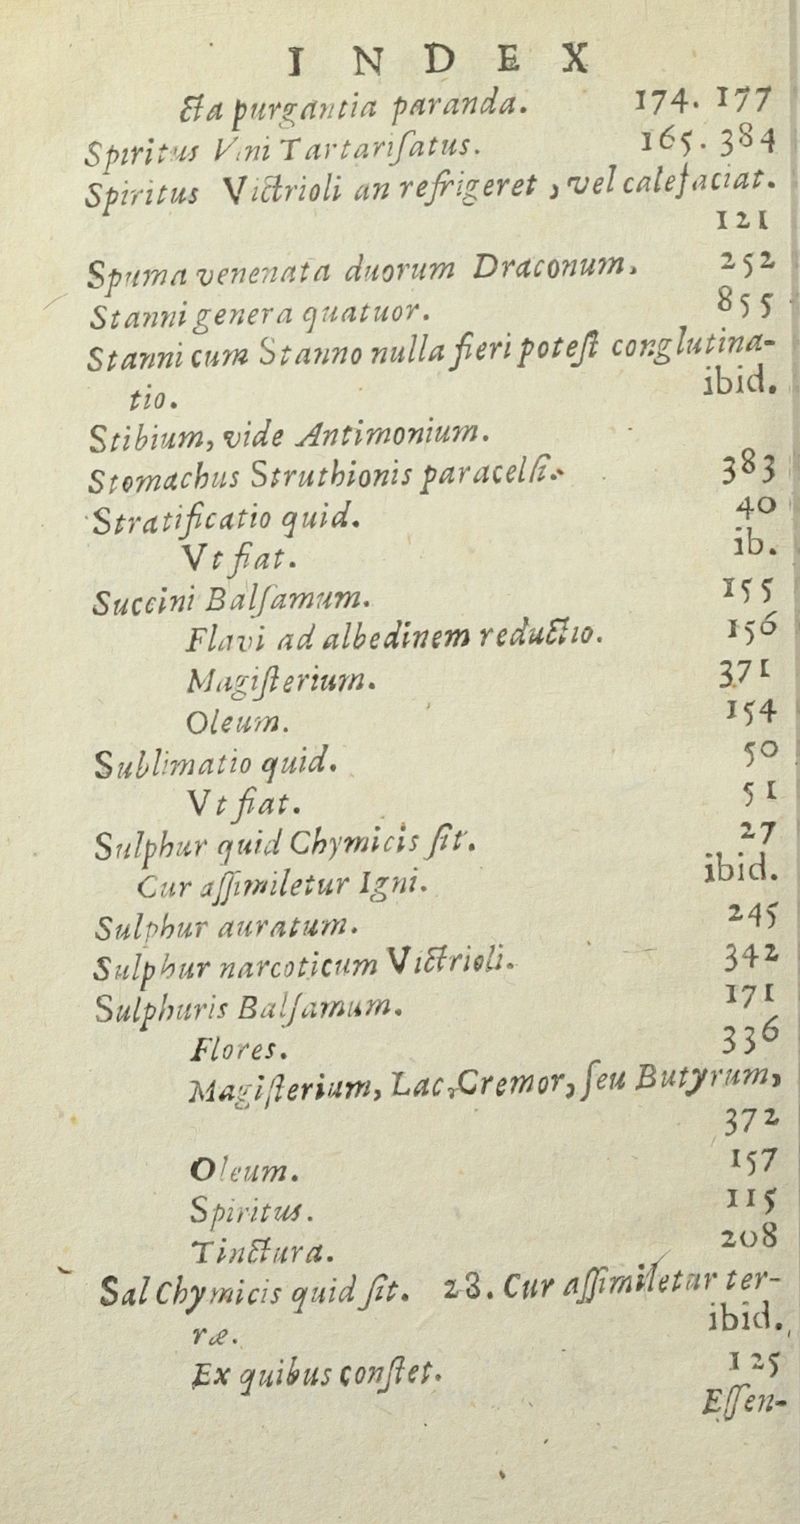 INDEX
cta purgantia paranda. 174. 177
Spiritus Vini Tartariſatus. 165. 384
Spiritus Victrioli an refrigeret, vel calefaciat.
121
Spuma venenata duorum Draconum. 252
Stanni genera quatuor. 855
Stanni cum Stanno nulla fieri poteſt conglutina-
tio. ibid.
Stibium, vide Antimonium.
Stomachus Struthionis paracelſi. 383
Stratificatio quid. 40
Vt fiat. ib.
Succini Balſamum. 155
Flavi ad albedinem reductio. 156
Magiſterium. 371
Oleum. 154
Sublimatio quid. 50
Vt fiat. 51
Sulphur quid Chymicis ſit. 27
Cur aſſimiletur Igni. ibid.
Sulphur auratum. 245
Sulphur narcoticum Victrioli. 342
Sulphuris Balſamum. 171
Flores. 336
Magiſterium, Lac, Cremor, ſeu Butyrum,
372
Oleum. 157
Spiritus. 115
Tinctura. 208
Sal Chymicis quid ſit. 28. Cur aſſimiletur ter-
ræ. ibid.
Ex quibus conſtet. 125
Eſſen-